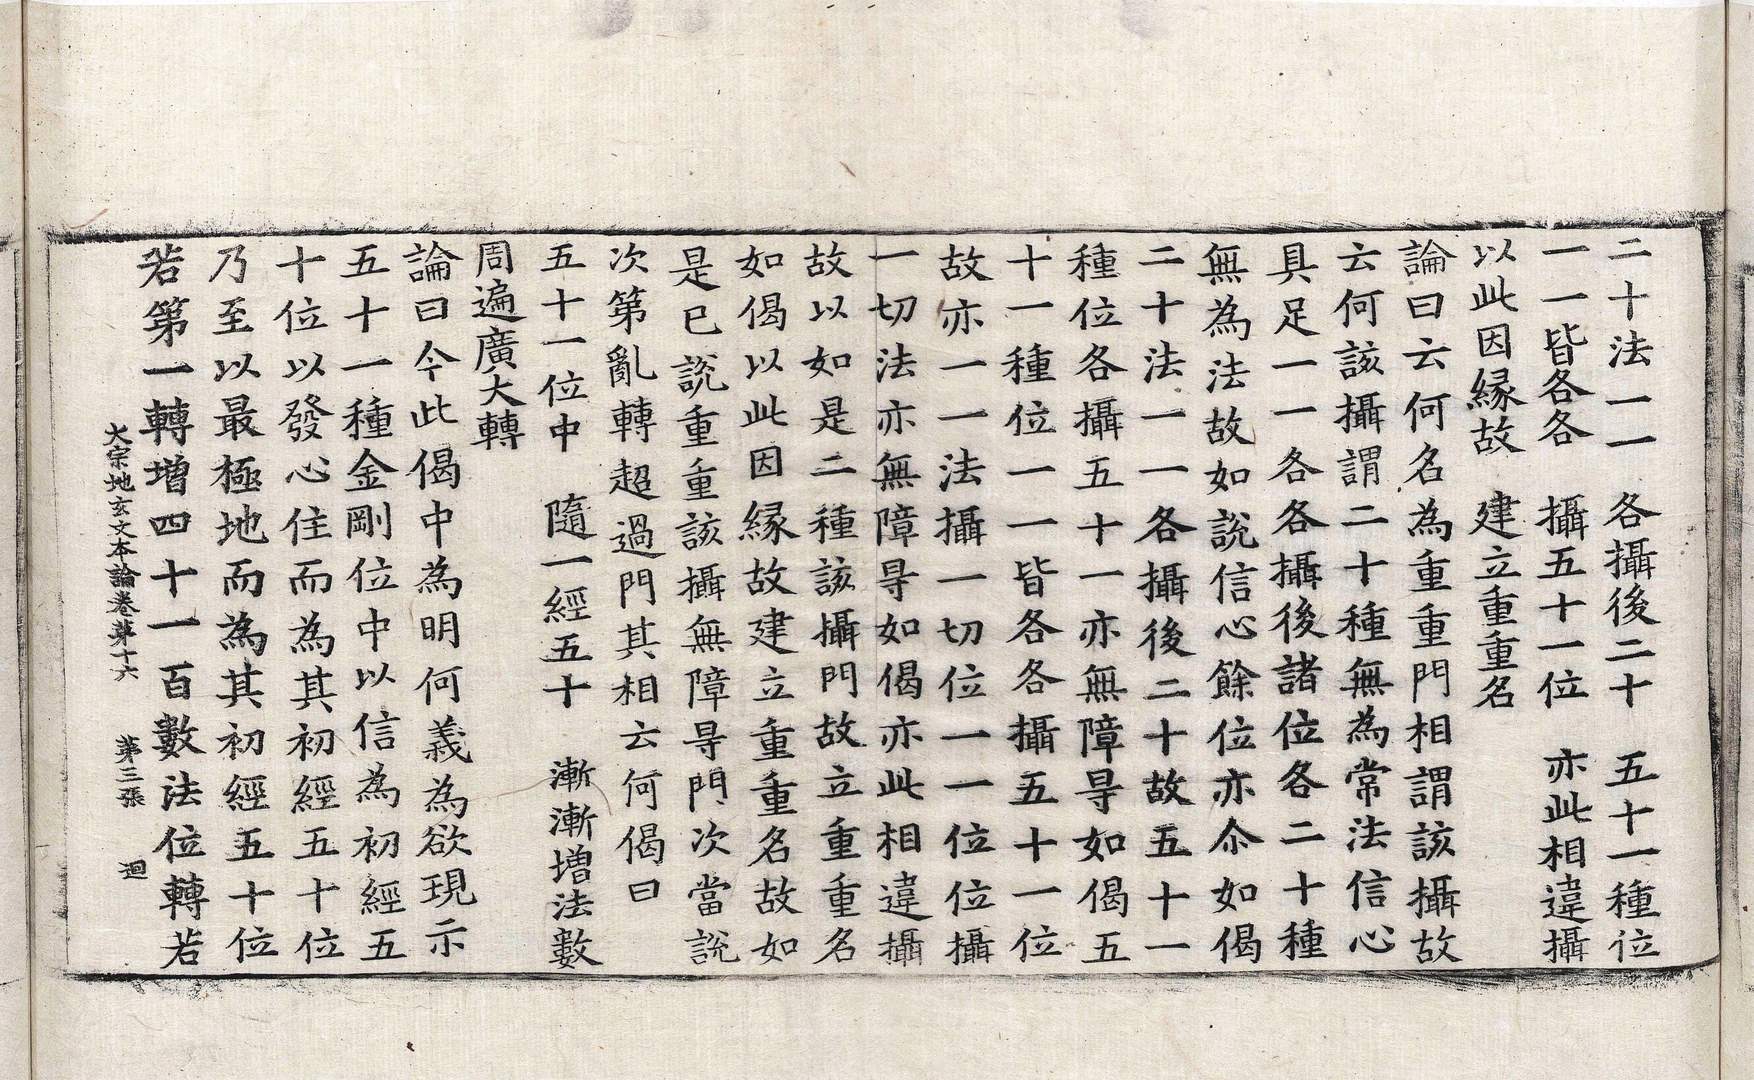 二十法一一　各攝後二十　五十一種位
一一皆各各　攝五十一位　亦此相違攝
以此因縁故　建立重重名
論曰云何名為重重門相謂該攝故
云何該攝謂二十種無為常法信心
具足一一各各攝後諸位各二十種
無為法故如說信心餘位亦尒如偈
二十法一一各攝後二十故五十一
種位各攝五十一亦無障㝵如偈五
十一種位一一皆各各攝五十一位
故亦一一法攝一切位一一位位攝
一切法亦無障㝵如偈亦此相違攝
故以如是二種該攝門故立重重名
如偈以此因縁故建立重重名故如
是已說重重該攝無障㝵門次當說
次第亂轉超過門其相云何偈曰
五十一位中　隨一經五十　漸漸增法數
周遍廣大轉
論曰今此偈中為明何義為欲現示
五十一種金剛位中以信為初經五
十位以發心住而為其初經五十位
乃至以最極地而為其初經五十位
若第一轉增四十一百數法位轉若
大宗地玄文本論卷苐十六　苐三張　迴